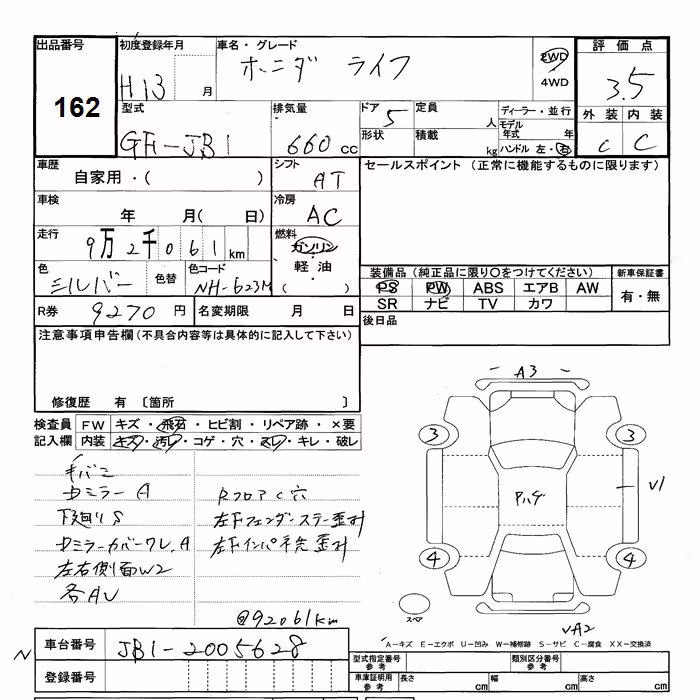 出品番号 初度登録年月 車名・グレード 評価点
162 H13 月 ホンダ ライフ 2WD 4WD 3.5
型式 排気量 ドア 定員 人 ディーラー・並行 外装 内装
GF-JB1 660 cc 5 形状 積載 kg モデル年式 年 ハンドル 左・右 C C
車歴 シフト セールスポイント (正常に機能するものに限ります)
自家用・( ) AT
車検 冷房
年 月( 日) AC
走行 燃料
9万2千061km ガソリン
軽油
色 色替 色コード ( )
シルバー NH-623M
装備品(純正品に限り○をつけてください) 新車保証書
PS PW ABS エアB AW 有・無
SR ナビ TV カワ
R券 9270 円 名変期限 月 日 後日品
注意事項申告欄(不具合内容等は具体的に記入して下さい)
修復歴 有 〔箇所 〕
検査員 FW キズ・飛石・ヒビ割・リペア跡・×要
記入欄 内装 キズ・汚れ・コゲ・穴・スレ・キレ・破レ
A3
3 3
V1
4 4
スペア
VA2
Dミラー A RフロアC穴
下廻りS 左Fフェンダーステー歪み
Dミラーカバーワレ、A 左Fインパネ先歪み
左右側面W2
各AU
@92061km
車台番号 JB1-2005628
N
登録番号
A-キズ E-エクボ U-凹み W-補修跡 S-サビ C-腐食 XX-交換済
型式指定番号 参考 類別区分番号 参考
車庫証明用 参考 長さ cm 幅 cm 高さ cm